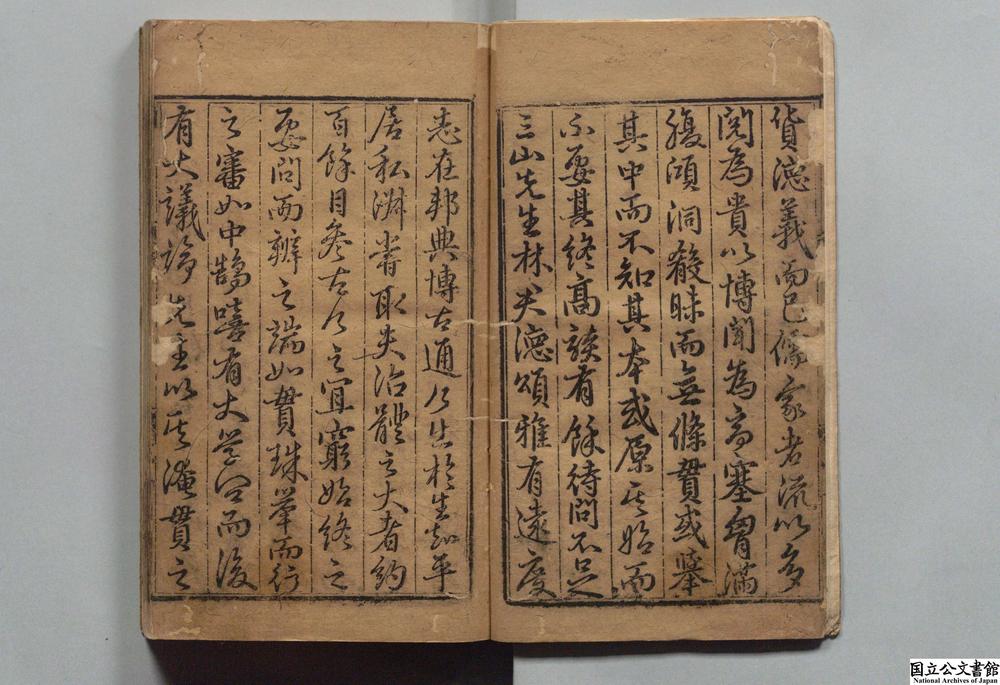 貨德義而已儒家者流以多
閱為貴以博聞為高塞胷滿
腹澒洞殽昧而無條貫或舉
其中而不知其本或原其始而
不要其終高談有餘待問不足
三山先生林夫德頌雅有遠度
志在邦典博古通今出於生知平
居私淑嘗取夫治體之大者約
百餘目參古今之宜窮始終之
要問而辨之端如貫珠舉而行
之審如中鵠嘻有大學問而後
有大議論先生以其淹貫之
国立公文書館
National Archives of Japan